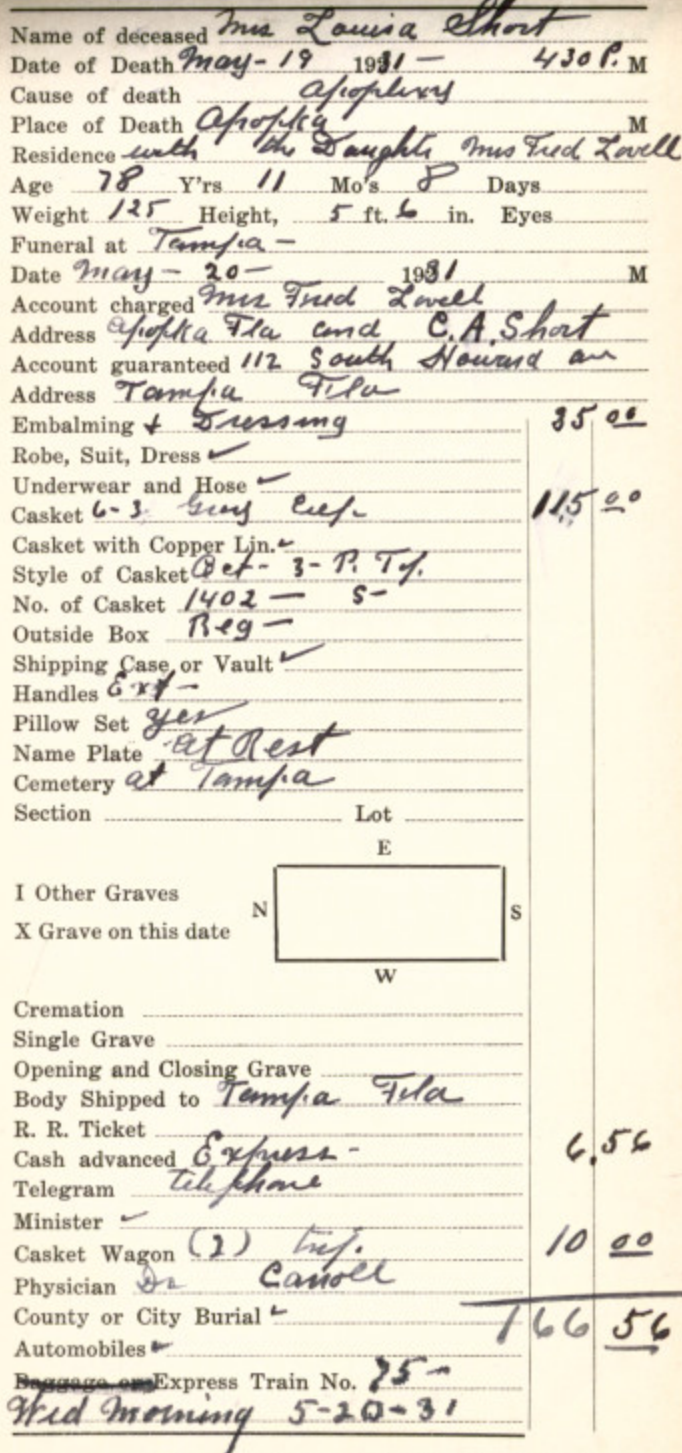 Name of deceased Mrs Louisa Short
Date of Death May - 19 1931 - 430 P. M
Cause of death Apoplexy
Place of Death Apopka M
Residence with the Daughter Mrs Fred Lovell
Age 78 Y'rs 11 Mo's 8 Days
Weight 125 Height, 5 ft. 6 in. Eyes
Funeral at Tampa -
Date May - 20 - 1931 M
Account charged Mrs Fred Lovell
Address Apopka Fla and C.A. Short
Account guaranteed 112 South Howard av
Address Tampa Fla
Embalming + Dressing 35 00
Robe, Suit, Dress ✓
Underwear and Hose ✓
Casket 6-3 Grey 115 00
Casket with Copper Lin. ✓
Style of Casket Oct - 3 - P. T.
No. of Casket 1402 - S -
Outside Box Reg -
Shipping Case or Vault ✓
Handles Ext -
Pillow Set yes
Name Plate At Rest
Cemetery at Tampa
Section Lot
E
I Other Graves
N S
X Grave on this date
W
Cremation
Single Grave
Opening and Closing Grave
Body Shipped to Tampa Fla
R. R. Ticket
Cash advanced Express - 6.56
Telegram telephone
Minister ✓
Casket Wagon (2) trip. 10 00
Physician Dr Carroll
County or City Burial ✓ 166 56
Automobiles ✓
Baggage or Express Train No. 75 -
Wed Morning 5-20-31